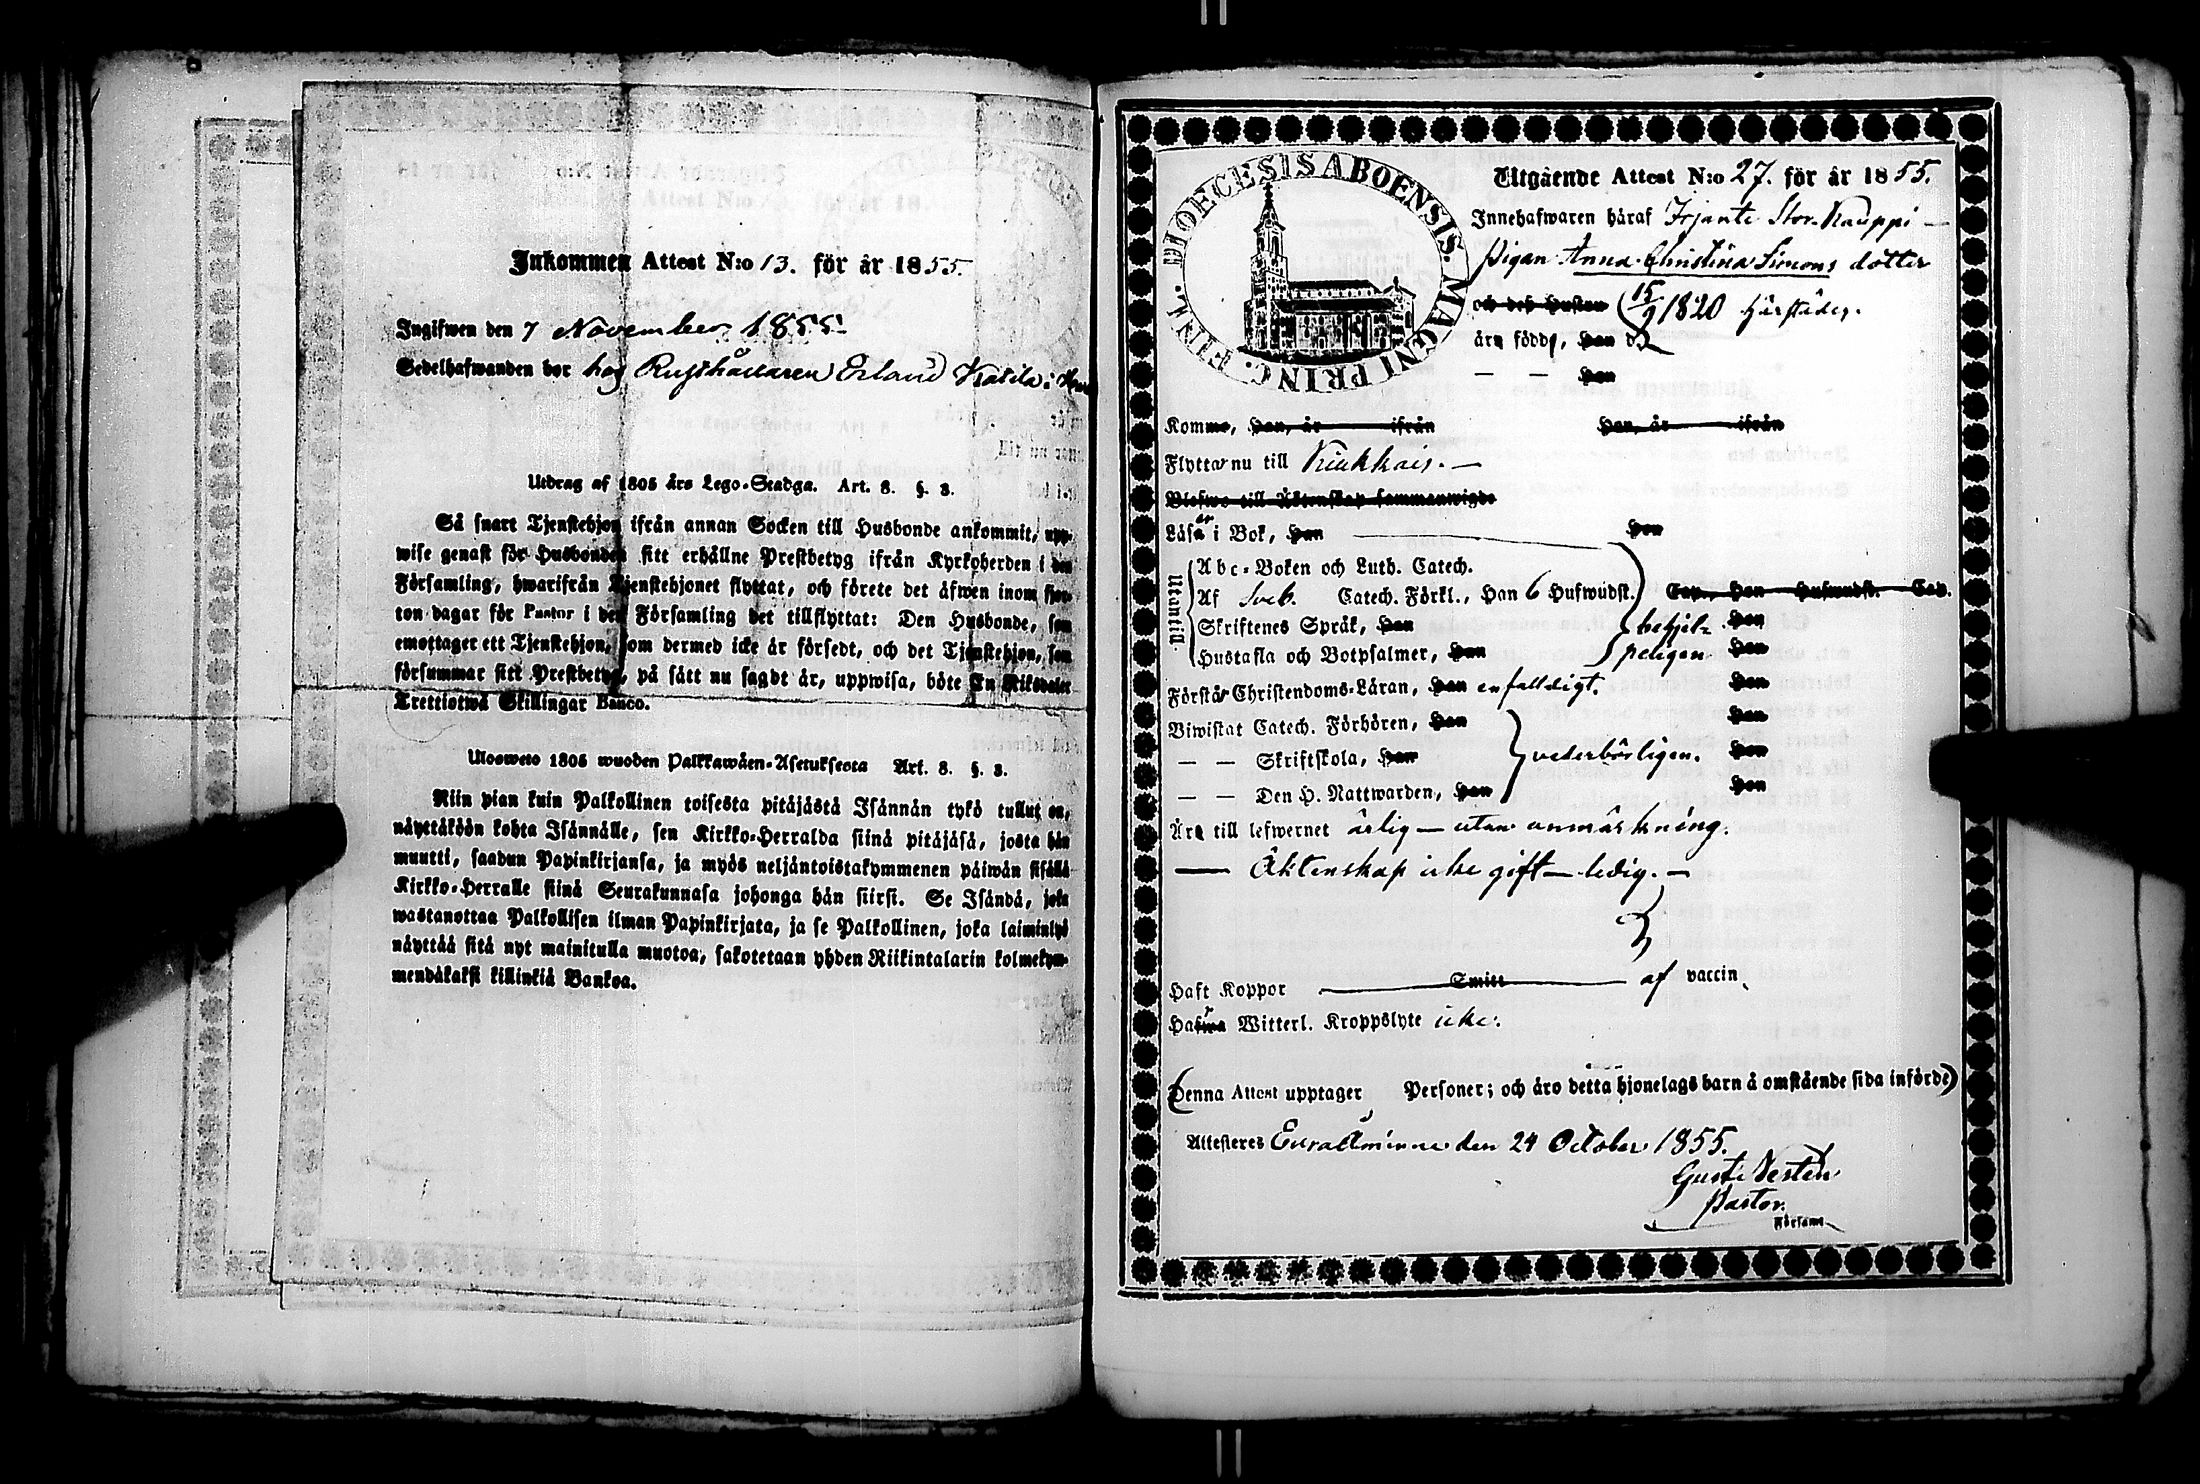 Inkommen Attest N:o 13. för år 1855.
Ingifwen den 7 November 1855.
Sedelhafwanden bor hos Rusthållaren Erland Kratila i
Utdrag af 1805 års Lego-Stadga. Art. 8. §. 3.
Så snart Tjenstehjon ifrån annan Socken till Husbonde ankommit, upp-
wise genast för Husbonden sitt erhållne Prestbetyg ifrån Kyrkoherden i den
Församling, hwarifrån Tjenstehjonet flyttat, och förete det äfwen inom fjor-
ton dagar för Pastor i den Församling det tillflyttat: Den Husbonde, som
emottager ett Tjenstehjon, som dermed icke är försedt, och det Tjenstehjon, som
försummar sitt Prestbetyg, på sätt nu sagdt är, uppwisa, böte En Riksdaler
Trettiotwå Skillingar Banco.
Ulosweto 1805 wuoden Palkkawäen-Asetuksesta Art. 8. §. 3.
Niin pian kuin Palkollinen toisesta pitäjästä Isännän tykö tullut on,
näyttäköön kohta Isännälle, sen Kirkko-Herralda siinä pitäjäsä, josta hän
muutti, saadun Papinkirjansa, ja myös neljäntoistakymmenen päiwän sisällä
Kirkko-Herralle siinä Seurakunnasa johonga hän siirsi. Se Isändä, joka
wastanottaa Palkollisen ilman Papinkirjata, ja se Palkollinen, joka laiminlyö
näyttää sitä nyt mainitulla muotoa, sakotetaan yhden Riikintalarin kolmekym-
mendäkaksi killinkiä Bankoa.
DIOECESIS ABOENSIS. MAGNI PRINC. FINL.
Utgående Attest N:o 27. för år 1855.
Innehafwaren häraf Irjante Stor-Kauppi
Pigan Anna Christina Simons dotter
och deß Hustru (15/9 1820 härstädes.
äro född, han d.
— — hon
Komme, han, år ifrån hon, år ifrån
Flyttar nu till Kiukkais.
Blefwo till Äktenskap sammanwigde
Läser i Bok, han hon
Utantill.
Abc-Boken och Luth. Catech.
Af Sveb. Catech. Förkl., han 6 Hufwudst. Cap., hon Hufwudst. Cap.
Skriftenes Språk, han behjel- hon
Hustafla och Botpsalmer, han peligen hon
Förstår Christendoms-Läran, han enfalldigt. hon
Biwistat Catech. Förhören, han hon
— — Skriftskola, han vederbörligen. hon
— — Den H. Nattwarden, han hon
Äro till lefwernet ärlig — utan anmärkning.
— Äktenskap icke gift — ledig. —
Haft Koppor Smitt af vaccin
Har Witterl. Kroppslyte icke.
(Denna Attest upptager Personer; och äro detta hjonelags barn å omstående sida införde)
Attesteres Euraåminne den 24 October 1855.
Gust. Vestén
Pastor.
Församl.